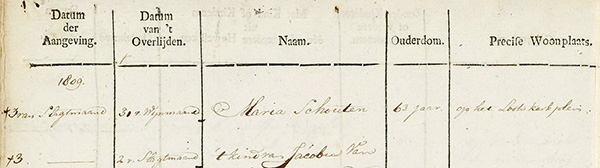 Datum der Aangeving. Datum van 't Overlijden. Naam. Ouderdom. Precise Woonplaats.
1809.
3 van Slagtmaand 31 v. Wijnmaand Maria Schouten 63 jaar. op het Looskerkplein
3 — 2 v. Slagtmaand 't kind van Jacobus Van